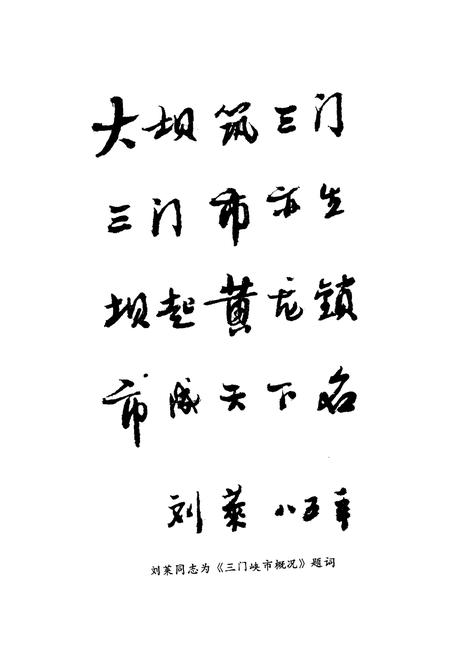 大坝筑三门
三门市亦生
坝起黄龙鎖
市成天下名
刘莱 八五年
刘莱同志为《三门峡市概况》题词